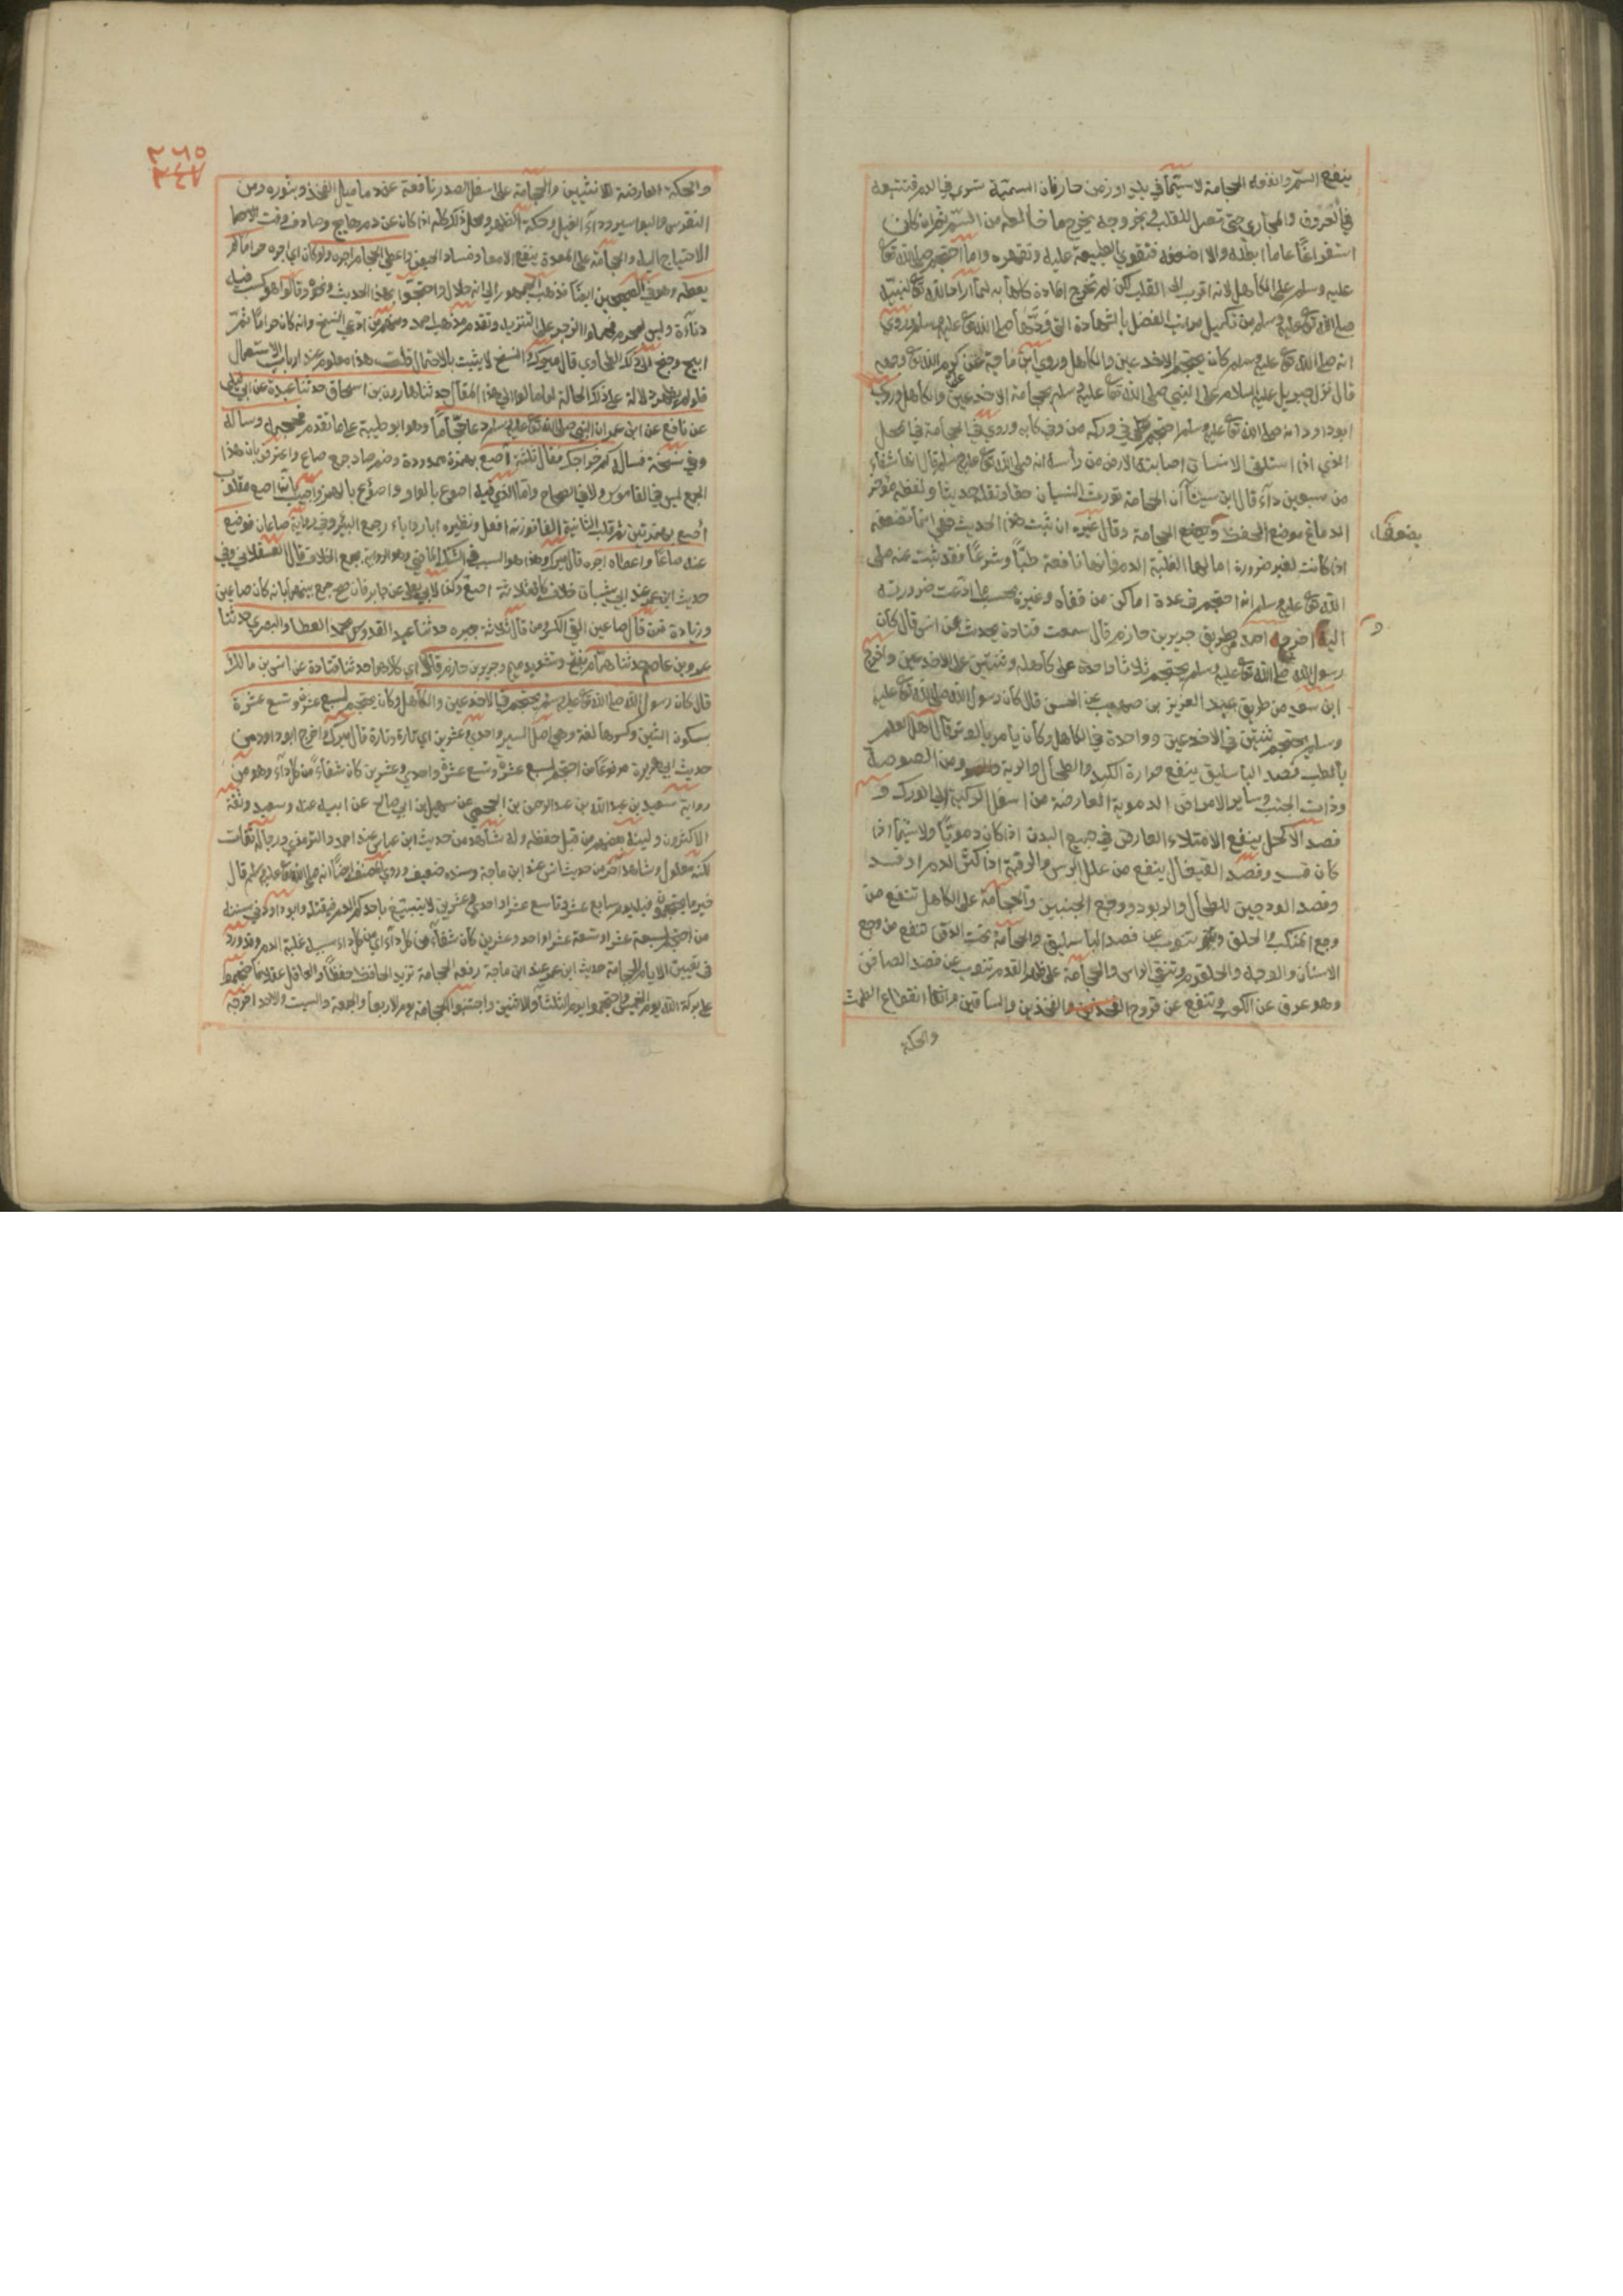 ينفع السم وانفعه الحجامة لاسيما في بلد او زمن حار فان السمية تسري في الدم فتتبعه
في العروق والمجاري حتى تصل للقلب وبخروجه يخرج ما خالطه من السم ثم ان كان
استفراغا عاما ابطله والا اضعفه فتقوي الطبيعة عليه وتقهره وانما احتجم صلى الله تعالى
عليه وسلم على الكاهل لانه اقرب الى القلب لكن لم تخرج المادة كلها به لما اراد الله تعالى لنبيه
صلى الله تعالى عليه وسلم من تكميل مراتب الفضل بالشهادة التي ودها صلى الله تعالى عليه وسلم وروي
انه صلى الله تعالى عليه وسلم كان يحتجم الاخدعين والكاهل وروى ابن ماجة عن كرم الله تعالى وجهه
قال نزل جبريل عليه السلام على النبي صلى الله تعالى عليه وسلم بحجامة الاخدعين والكاهل وروى
ابو داود انه صلى الله تعالى عليه وسلم احتجم في وركه من وروي في الحجامة في المحل
الذي اذا استلقى الانسان اصابته الارض من رأسه انه صلى الله تعالى عليه وسلم قال انها شفاء
من سبعين داء قال ابن سينا ان الحجامة تورث النسيان حقا ونقل حديثا ولفظه مؤخر
الدماغ موضع الحفظ وتضعفه الحجامة وقال غيره ان ثبت هذا الحديث فهي انما تضعفه
يضعفها
اذا كانت لغير ضرورة اما لها لغلبة الدم فانها نافعة طبا وشرعا فقد ثبت عنه صلى
الله تعالى عليه وسلم انه احتجم في عدة اماكن من قفاه وغيره بحسب ما دعت ضرورته
اليه اخرجه احمد من طريق جرير بن حازم قال سمعت قتادة يحدث عن انس قال كان
رسول الله صلى الله تعالى عليه وسلم يحتجم ثلاثا واحدة على كاهله وثنتين على الاخدعين واخرج
ابن سعد من طريق عبد العزيز بن صهيب عن الحسن قال كان رسول الله صلى الله تعالى عليه
وسلم يحتجم ثنتين في الاخدعين وواحدة في الكاهل وكان يأمر بالوتر قال اهل العلم
بالطب فصد الباسليق ينفع حرارة الكبد والطحال والرية ومن الصوصة
وذات الجنب وساير الامراض الدموية العارضة من اسفل الركبة الى الورك و
فصد الاكحل ينفع الامتلاء العارض في جميع البدن اذا كان دمويا ولاسيما اذا
كان فسد وفصد القيفال ينفع من علل الرأس والرقبة اذا كثر الدم او فسد
وفصد الودجين للطحال والربو ووجع الجنبين والحجامة على الكاهل تنفع من
وجع المنكب والحلق وتنوب عن فصد الباسليق والحجامة تحت الذقن تنفع من وجع
الاسنان والوجه والحلقوم وتنقي الرأس والحجامة على ظهر القدم تنوب عن فصد الصافن
وهو عرق عند الكعب وتنفع عن قروح الفخذين والساقين وانقطاع الطمث
والحكة
٢٦٥
٢٤٧
والحكة العارضة للانثيين والحجامة على اسفل الصدر نافعة عند دماميل الفخذ وبثوره ومن
النقرس والبواسير وداء الفيل وحكة الظهر ومحل ذلك كله اذا كان عن دم هايج وصادف وقت
الاحتياج اليه والحجامة على المعدة ينفع الامعا وفساد الحيض واعطى الحجام اجره ولو كان اي اجره حراما لم
يعطه وهو في الصحيحين ايضا فذهب الجمهور الى انه حلال واحتجوا بهذا الحديث ونحوه وقالوا هو كسب فيه
دناءة وليس بمحرم فحملوا الزجر على التنزيه وتقدم مذهب احمد ومنهم من ادعى النسخ وانه كان حراما ثم
ابيح وجنح الى ذلك الطحاوي قال ميرك والنسخ لا يثبت بالاحتمال قلت هذا معلوم عند ارباب الاستعمال
المقال حدثنا هارون بن اسحاق حدثنا عبدة عن ابن ابي ليلى
عن نافع عن ابن عمر ان النبي صلى الله تعالى عليه وسلم دعا حجاما وهو ابو طيبة على ما تقدم فحجمه وسأله
وفي نسخة فسأل كم خراجك فقال ثلثة آصع بهمزة ممدودة وضم صاد جمع صاع واعترض بان هذا
الجمع ليس في القاموس ولا في الصحاح وانما الذي فيه اصوع بالواو واصؤع بالهمز واجيب بان آصع مقلوب
اصوع بهمزتين ثم قلبت الثانية الفا فوزنه افعل ونظيره ابار وآبار جمع البئر وفي رواية صاعان فوضع
عنه صاعا واعطاه اجره قال ميرك وهذا هو السبب في الشك الماضي وهذه الرواية تجمع الخلاف قال العسقلاني وفي
حديث ابن عمر عند ابن ابي شيبة ان خراجه كان ثلاثة اصع وكذا لابي يعلى عن جابر فان صح جمع بينهما بانه كان صاعين
وزيادة فمن قال صاعين القى الكسر ومن قال ثلاثة جبره حدثنا عبد القدوس بن محمد العطار البصري حدثنا
عمرو بن عاصم حدثنا همام بفتح وتشديد ميم وجرير بن حازم قالا اي كلاهما حدثنا قتادة عن انس بن مالك
قال كان رسول الله صلى الله تعالى عليه وسلم يحتجم في الاخدعين والكاهل وكان يحتجم لسبع عشرة وتسع عشرة
بسكون الشين وكسرها لغة وهي اصل السير واحدى وعشرين اي تارة وتارة قال ميرك واخرج ابو داود من
حديث ابي هريرة مرفوعا من احتجم لسبع عشرة وتسع عشرة واحدي وعشرين كان شفاء من كل داء وهو من
رواية سعيد بن عبد الله بن عبد الرحمن بن الجمحي عن سهيل بن ابي صالح عن ابيه عنه وسعيد وثقه
الاكثرون ولينه بعضهم من قبل حفظه وله شاهد من حديث ابن عباس عند احمد والترمذي ورجاله ثقات
لكنه معلول وشاهد آخر من حديث انس عند ابن ماجة وسنده ضعيف وروى المصنف ايضا انه صلى الله تعالى عليه وسلم قال
خير ما يحتجمون فيه يوم سابع عشر وتاسع عشر او احدي وعشرين لا يتبيغ باحدكم الدم فيقتله وابو داود في سننه
من احتجم لسبعة عشر او تسعة عشر او احد وعشرين كان شفاء من كل داء اي من كل داء سببه غلبة الدم وقد ورد
في تعيين الايام للحجامة حديث ابن عمر عند ابن ماجة رفعه الحجامة تزيد الحافظ حفظا والعاقل عقلا فاحتجموا
على بركة الله يوم الخميس واحتجموا يوم الثلثاء والاثنين واجتنبوا الحجامة يوم الاربعاء والجمعة والسبت والاحد اخرجه